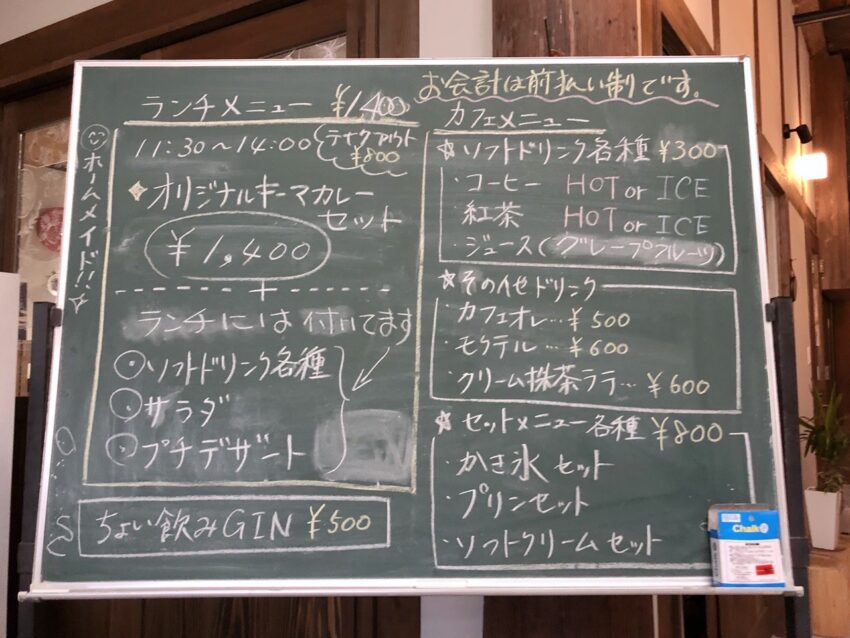 お会計は前払い制です。
ランチメニュー ¥1,400
11:30〜14:00
テイクアウト
¥800
ホームメイド!!
オリジナルキーマカレー
セット
¥1,400
+
ランチには付いてます
ソフトドリンク各種
サラダ
プチデザート
ちょい飲みGIN ¥500
カフェメニュー
☆ソフトドリンク各種 ¥300
・コーヒー HOT or ICE
・紅茶 HOT or ICE
・ジュース(グレープフルーツ)
☆その他ドリンク
・カフェオレ…¥500
・モクテル…¥600
・クリーム抹茶ラテ…¥600
☆セットメニュー各種 ¥800
・かき氷セット
・プリンセット
・ソフトクリームセット
Chalk